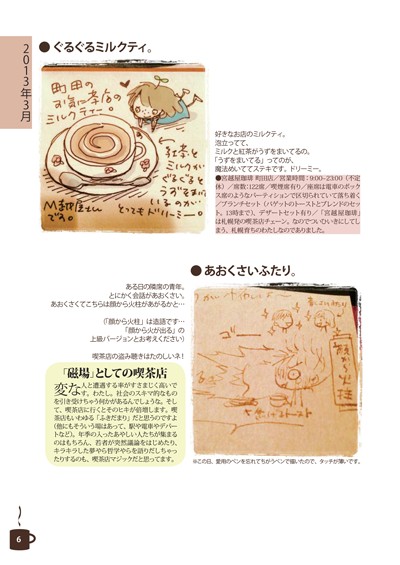 2013年3月
● ぐるぐるミルクティ。
町田の
お気に茶店の
ミルクティー。
←紅茶と
ミルクが
ぐるぐると
うずまいて
いるのが
とってもドリーミー。
M越屋さん
です。
好きなお店のミルクティ。
泡立ってて、
ミルクと紅茶がうずをまいてるの。
「うずをまいてる」ってのが、
魔法めいててステキです。ドリーミー。
●宮越屋珈琲 町田店／営業時間：9:00-23:00（不定
休）／席数：122席／喫煙席有り／座席は電車のボック
ス席のようなパーティションで区切られていて落ち着く
／ブランチセット（バゲットのトーストとブレンドのセッ
ト。13時まで）、デザートセット有り／「宮越屋珈琲」
は札幌発の喫茶店チェーン。なのでついひいきにしてし
まう、札幌育ちのわたしなのでありました。
● あおくさいふたり。
ある日の隣席の青年。
とにかく会話があおくさい。
あおくさくてこちらは顔から火柱があがるかと…
（「顔から火柱」は造語です…
「顔から火が出る」の
上級バージョンとお考えください）
喫茶店の盗み聴きはたのしいネ！
「磁場」としての喫茶店
変な人と遭遇する率がすさまじく高いで
す。わたし。社会のスキマ的なもの
を引き受けちゃう何かがあるんでしょうな。そし
て、喫茶店に行くとそのヒキが倍増します。喫
茶店もいわゆる「ふきだまり」だと思うのですよ
（他にもそういう場はあって、駅や電車やデパー
トなど）。年季の入ったあやしい人たちが集まる
のはもちろん、若者が突然議論をはじめたり、
キラキラした夢やら哲学やらを語りだしちゃっ
たりするのも、喫茶店マジックだと思ってます。
ゴー
顔が火柱
※この日、愛用のペンを忘れてちがうペンで描いたので、タッチが薄いです。
6